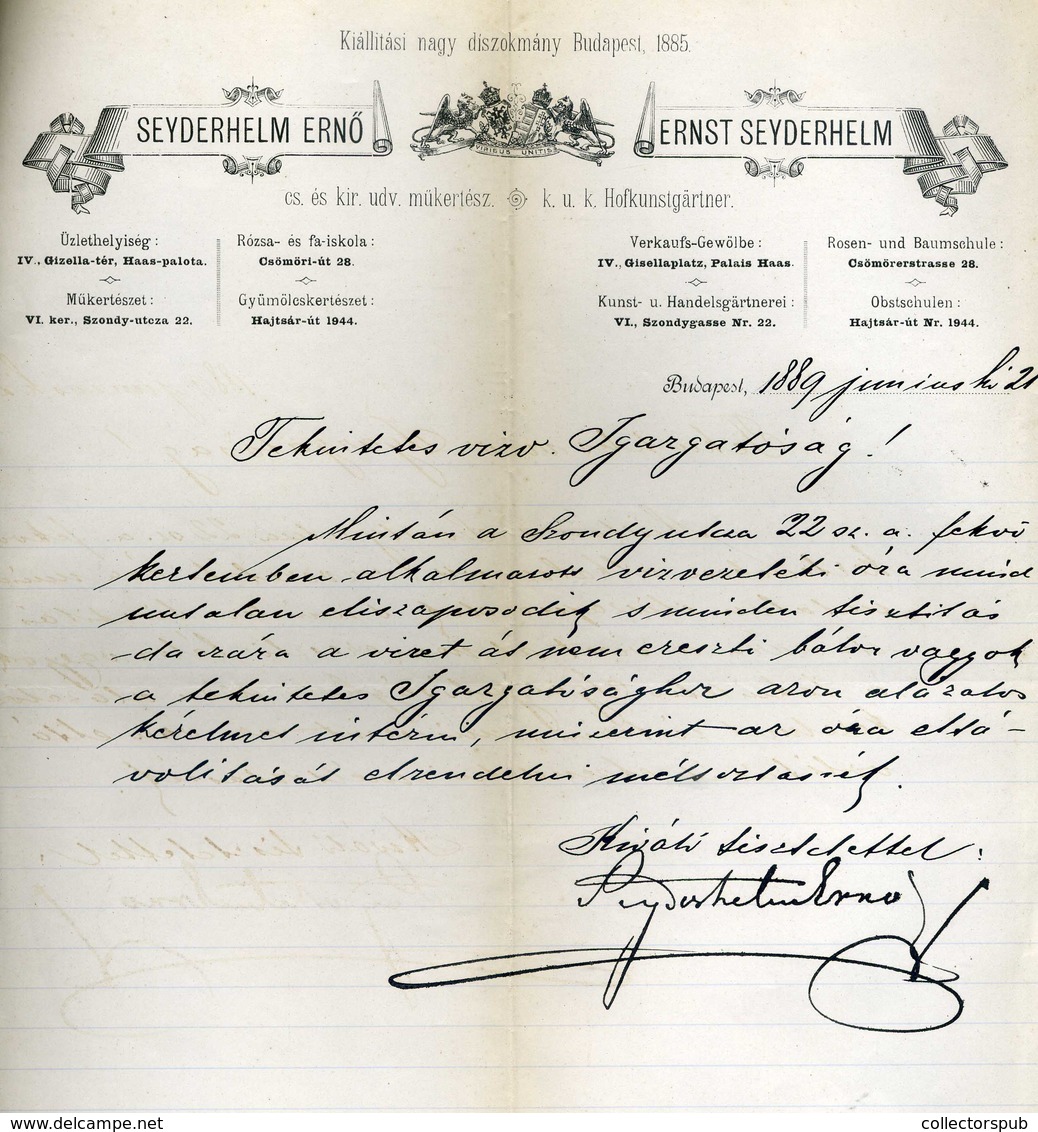 Kiállitási nagy díszokmány Budapest, 1885.
SEYDERHELM ERNŐ
VIRIBUS UNITIS
ERNST SEYDERHELM
cs. és kir. udv. műkertész. k. u. k. Hofkunstgärtner.
Üzlethelyiség:
IV., Gizella-tér, Haas-palota.
Műkertészet:
VI. ker., Szondy-utcza 22.
Rózsa- és fa-iskola:
Csömöri-út 28.
Gyümölcskertészet:
Hajtsár-út 1944.
Verkaufs-Gewölbe:
IV., Gisellaplatz, Palais Haas.
Kunst- u. Handelsgärtnerei:
VI., Szondygasse Nr. 22.
Rosen- und Baumschule:
Csömörerstrasse 28.
Obstschulen:
Hajtsár-út Nr. 1944.
Budapest, 1889 junius hó 21
Tekintetes vizv. Igazgatóság!
Miután a Szondy utcza 22 sz. a. fekvő
kertemben alkalmazott vizvezetéki óra mind
untalan eliszaposodik s minden tisztitás
daczára a vizet át nem ereszti bátor vagyok
a tekintetes Igazgatósághoz azon alázatos
kérelmet intézni, miszerint az óra eltá-
volitását elrendelni méltoztassék.
Kiváló tisztelettel:
Seyderhelm Ernő
Delcampe.net
collectorspub